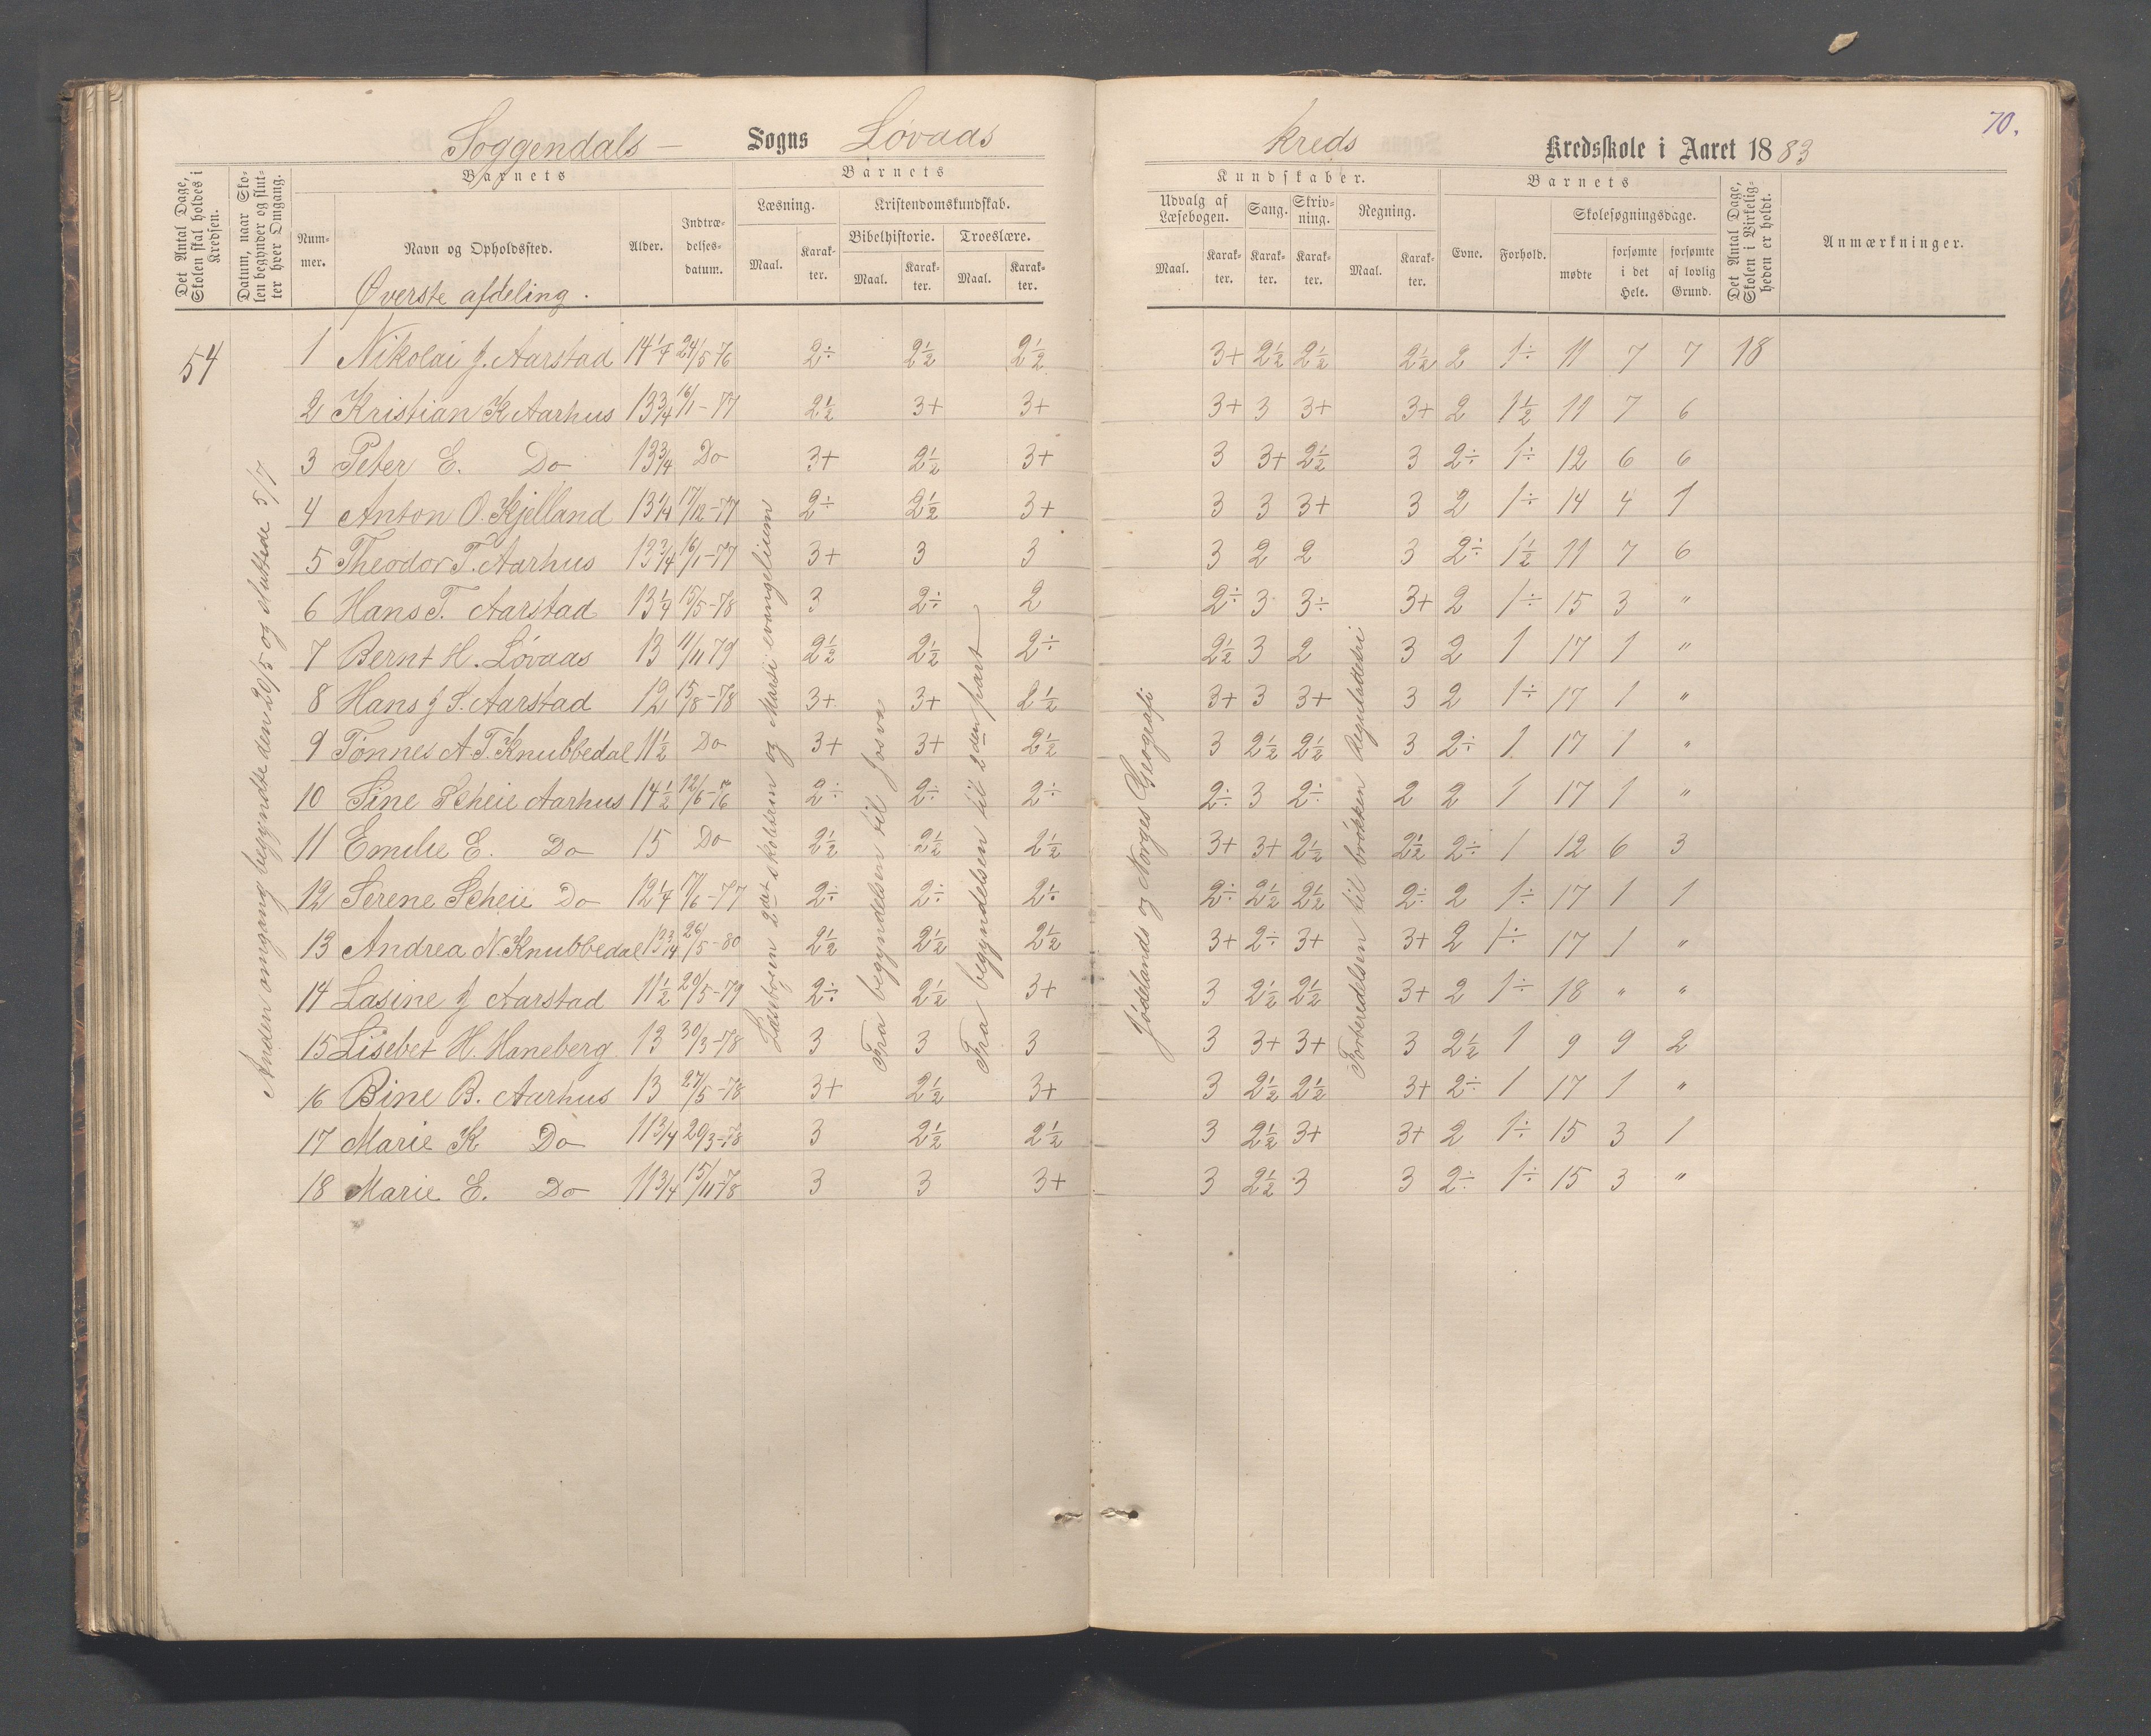 70.
Soggendals – Sogns Løvaas kreds Kredsskole i Aaret 1883
Det Antal Dage, Skolen skal holdes i Kredsen.
Datum, naar Skolen begynder og slutter hver Omgang.
Barnets
Nummer.
Navn og Opholdssted.
Alder.
Indtrædelsesdatum.
Barnets
Læsning.
Maal.
Karakter.
Kristendomskundskab.
Bibelhistorie.
Maal.
Karakter.
Troeslære.
Maal.
Karakter.
Kundskaber.
Udvalg af Læsebogen.
Maal.
Karakter.
Sang.
Karakter.
Skrivning.
Karakter.
Regning.
Maal.
Karakter.
Barnets
Evne.
Forhold.
Skolesøgningsdage.
mødte
forsømte i det Hele.
forsømte af lovlig Grund.
Det Antal Dage, Skolen i Virkeligheden er holdt.
Anmærkninger.
Øverste afdeling.
54
Anden omgang begyndte den 20/5 og sluttede 5/7
Læsebogen 2det skoletrin og Marsi evangelium
Fra begyndelsen til Josva
Fra begyndelsen til 2den part
Jødelands og Norges Geografi
Forberedelsen til brøkken Reguladetri
1 Nikolai J. Aarstad 14 1/4 24/5 76 2÷ 2½ 2½ 3+ 2½ 2½ 2½ 2 1÷ 11 7 7 18
2 Kristian K Aarhus 13 3/4 16/1-77 2½ 3+ 3+ 3+ 3 3+ 3+ 2 1½ 11 7 6
3 Peter E. Do 13 3/4 Do 3+ 2½ 3+ 3 3+ 2½ 3 2÷ 1÷ 12 6 6
4 Anton O. Kjelland 13 1/4 17/12-77 2÷ 2½ 3+ 3 3 3+ 3 2 1÷ 14 4 1
5 Theodor T. Aarhus 13 3/4 16/1-77 3+ 3 3 3 2 2 3 2÷ 1½ 11 7 6
6 Hans T. Aarstad 13 1/4 15/5-78 3 2÷ 2 2÷ 3 3÷ 3+ 2 1÷ 15 3 "
7 Bernt H. Løvaas 13 11/11 79 2½ 2½ 2÷ 2½ 3 2 3 2 1 17 1 "
8 Hans J S. Aarstad 12 15/8-78 3+ 3+ 2½ 3+ 3 3+ 3 2 1÷ 17 1 "
9 Tønnes A. T. Knubbedal 11½ Do 3+ 3+ 2½ 3 2½ 2½ 3 2÷ 1 17 1 "
10 Sine Scheie Aarhus 14½ 12/6-76 2÷ 2÷ 2÷ 2÷ 3 2÷ 2 2 1 17 1 "
11 Emilie E. Do 15 Do 2½ 2½ 2½ 3+ 3+ 2½ 2½ 2÷ 1 12 6 3
12 Serene Scheie Do 12 1/4 17/6-77 2÷ 2÷ 2÷ 2÷ 2½ 2½ 2÷ 2 1÷ 17 1 1
13 Andrea N. Knubbedal 13 3/4 26/5-80 2½ 2½ 2½ 3+ 2÷ 3+ 3+ 2 1÷ 17 1 "
14 Lasine J Aarstad 11½ 20/5-79 2÷ 2½ 3+ 3 2½ 2½ 3+ 2 1÷ 18 " "
15 Lisebet H. Haneberg 13 30/3-78 3 3 3 3 3+ 3+ 3 2½ 1 9 9 2
16 Bine B. Aarhus 13 27/5-78 3+ 2½ 3+ 3 2½ 2½ 3+ 2÷ 1 17 1 "
17 Marie K Do 11 3/4 20/3-78 3 2½ 2½ 3 2½ 3+ 3+ 2 1÷ 15 3 1
18 Marie E. Do 11 3/4 15/11-78 3 3 3+ 3 2½ 3 3 2÷ 1÷ 15 3 "